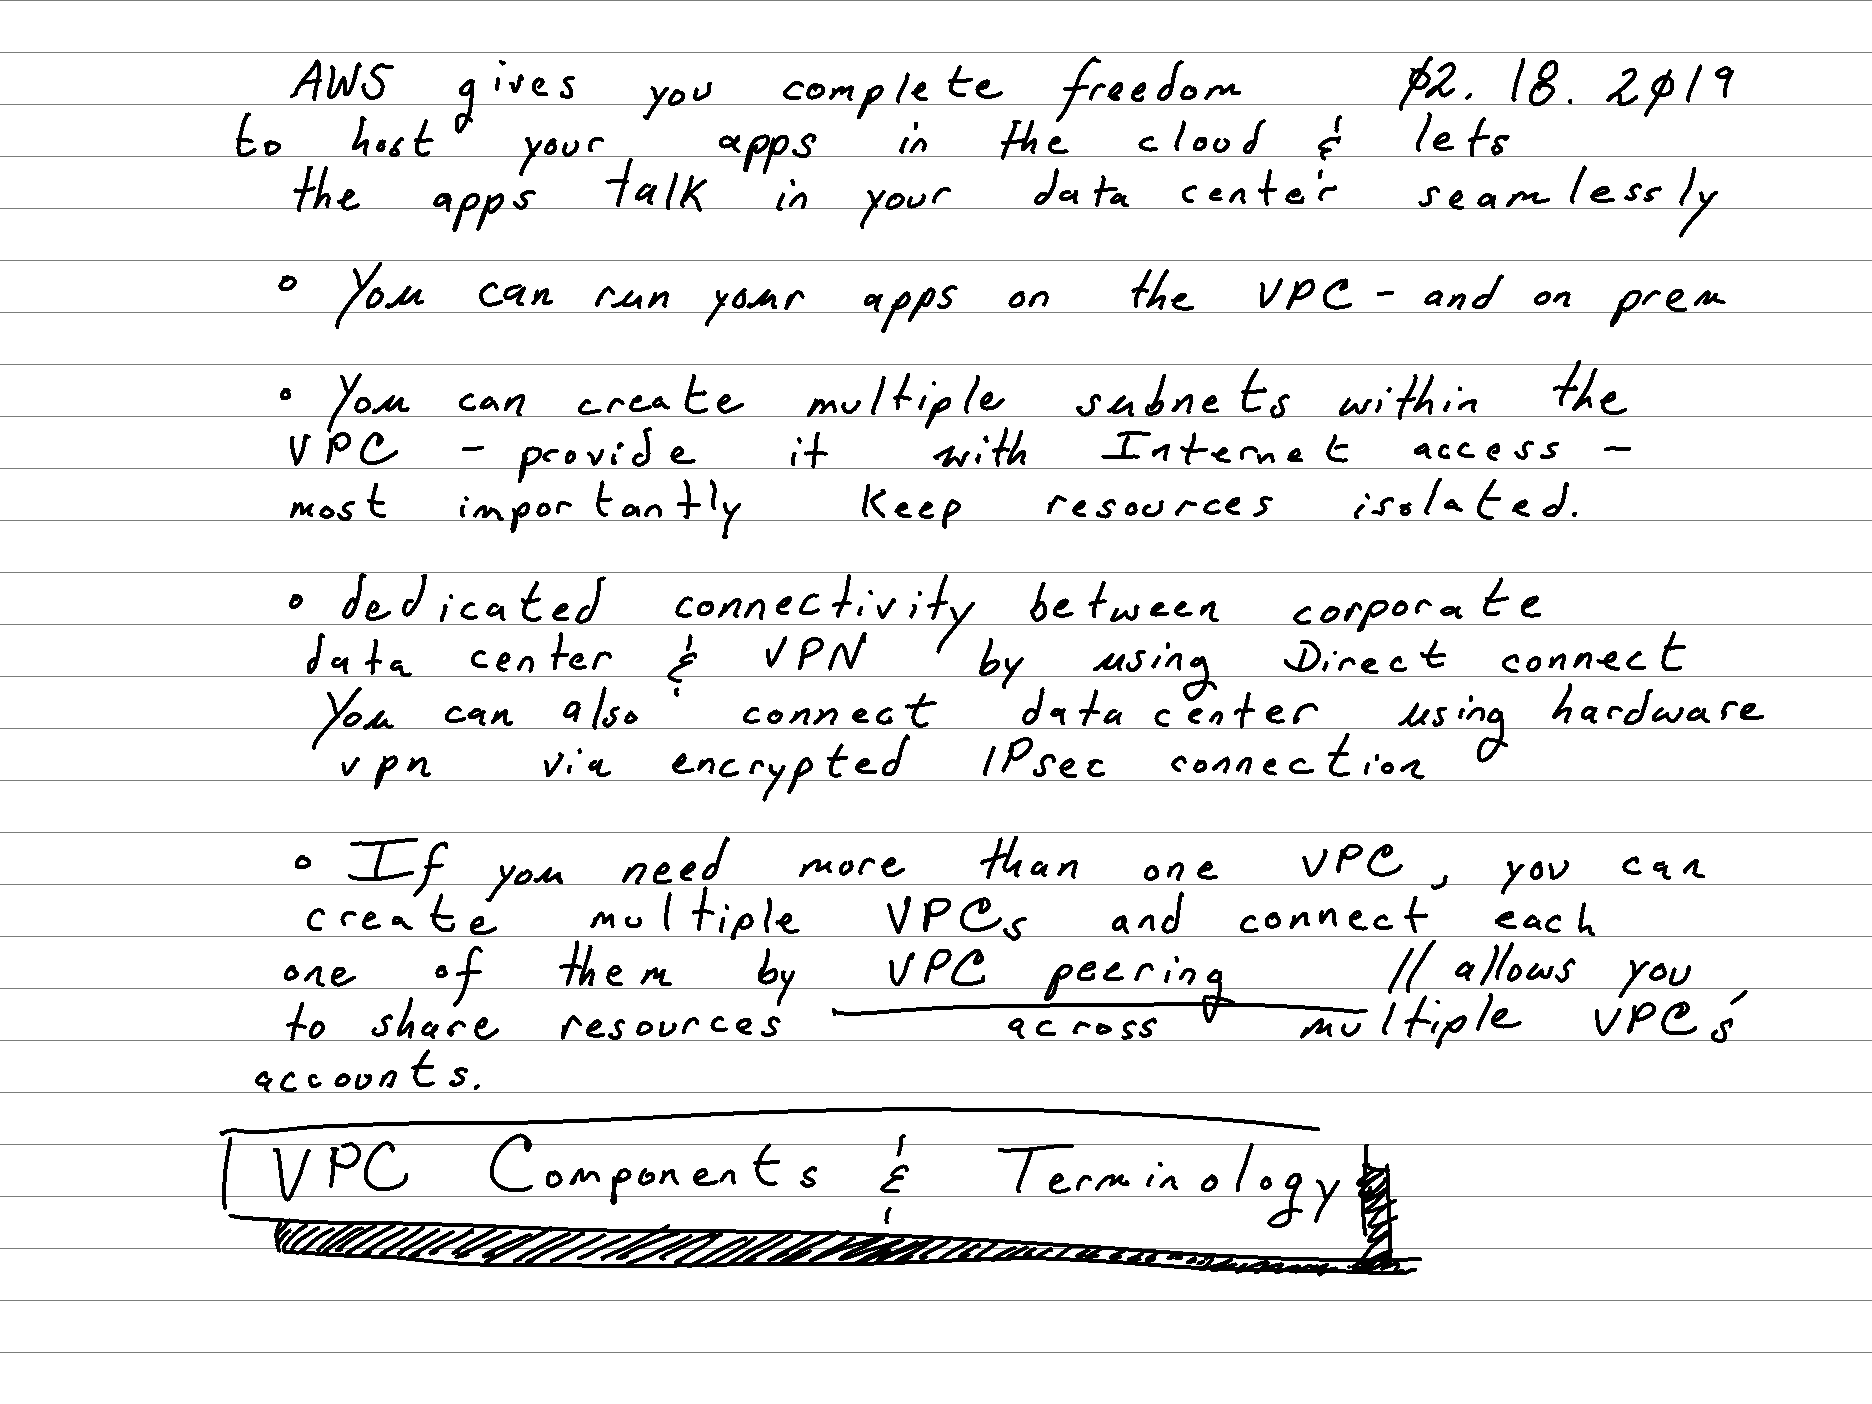 AWS gives you complete freedom 02.18.2019
to host your apps in the cloud & lets
the apps talk in your data center seamlessly
• You can run your apps on the VPC - and on prem
• You can create multiple subnets within the
VPC - provide it with Internet access -
most importantly keep resources isolated.
• dedicated connectivity between corporate
data center & VPN by using Direct connect
You can also connect data center using hardware
vpn via encrypted IPsec connection
• If you need more than one VPC, you can
create multiple VPCs and connect each
one of them by VPC peering // allows you
to share resources across multiple VPC's
accounts.
VPC Components & Terminology